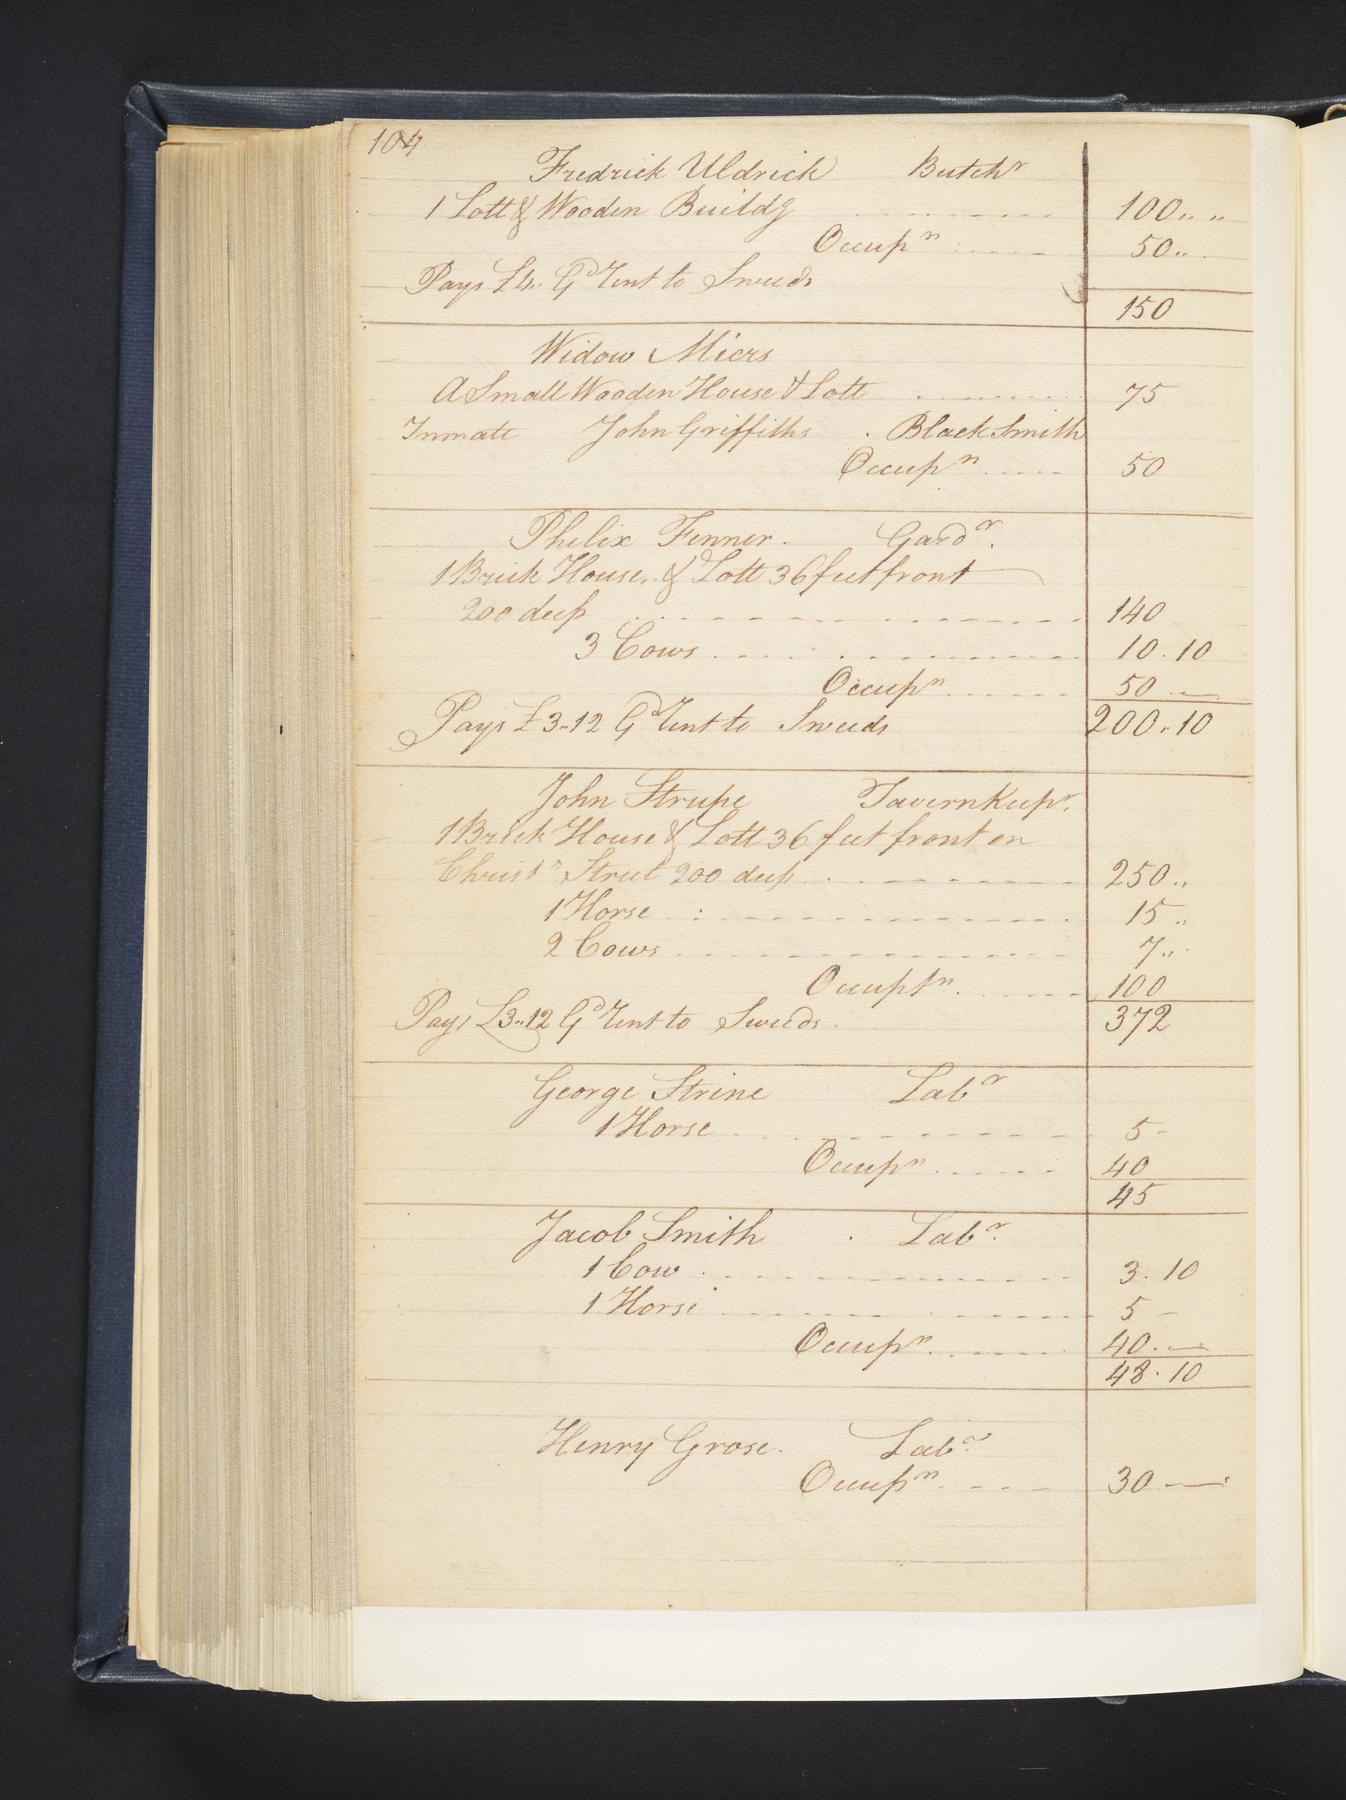 104
Fredrick Uldrick Butchr
1 Lott & Wooden Buildg 100
Occupn 50
Pays £4. Gd Rent to Sweeds
150
Widow Miers
A Small Wooden House & Lott 75
Inmate John Griffiths . BlackSmith
Occupn 50
Phelix Fenner. Gardr.
1 Brick House. & Lott 36 feet front
200 deep 140
3 Cows 10.10
Occupn 50 —
Pays £3..12 Gd Rent to Sweeds 200..10
John Strupe TavernKeepr.
1 Brick House & Lott 36 feet front on
Christn Street 200 deep 250..
1 Horse 15..
2 Cows 7..
Occuptn. 100
Pays £3..12 Gd Rent to Sweeds. 372
George Strine Labr
1 Horse 5-
Occupn 40
45
Jacob Smith . Labr.
1 Cow 3.10
1 Horse 5 -
Occupn. 40. —
48.10
Henry Grose. Labr.
Occupn 30 —